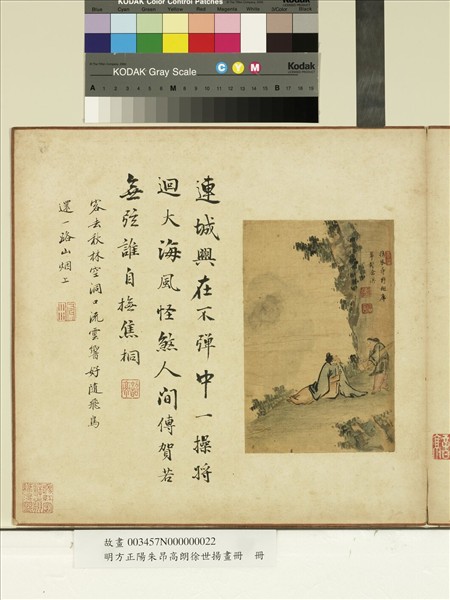 KODAK Color Control Patches
Blue Cyan Green Yellow Red Magenta White 3/Color Black
Kodak
KODAK Gray Scale
C Y M
Kodak
A 1 2 3 4 5 6 M 8 9 10 11 12 13 14 15 B 17 18 19
連城興在不彈中一操將
迴大海風怪煞人間傳賀若
無弦誰自撫焦桐
客去秋林空洞口流雲響好隨飛鳥
還一路山烟上
故畫 003457N000000022
明方正陽朱昂高朗徐世揚畫冊 冊